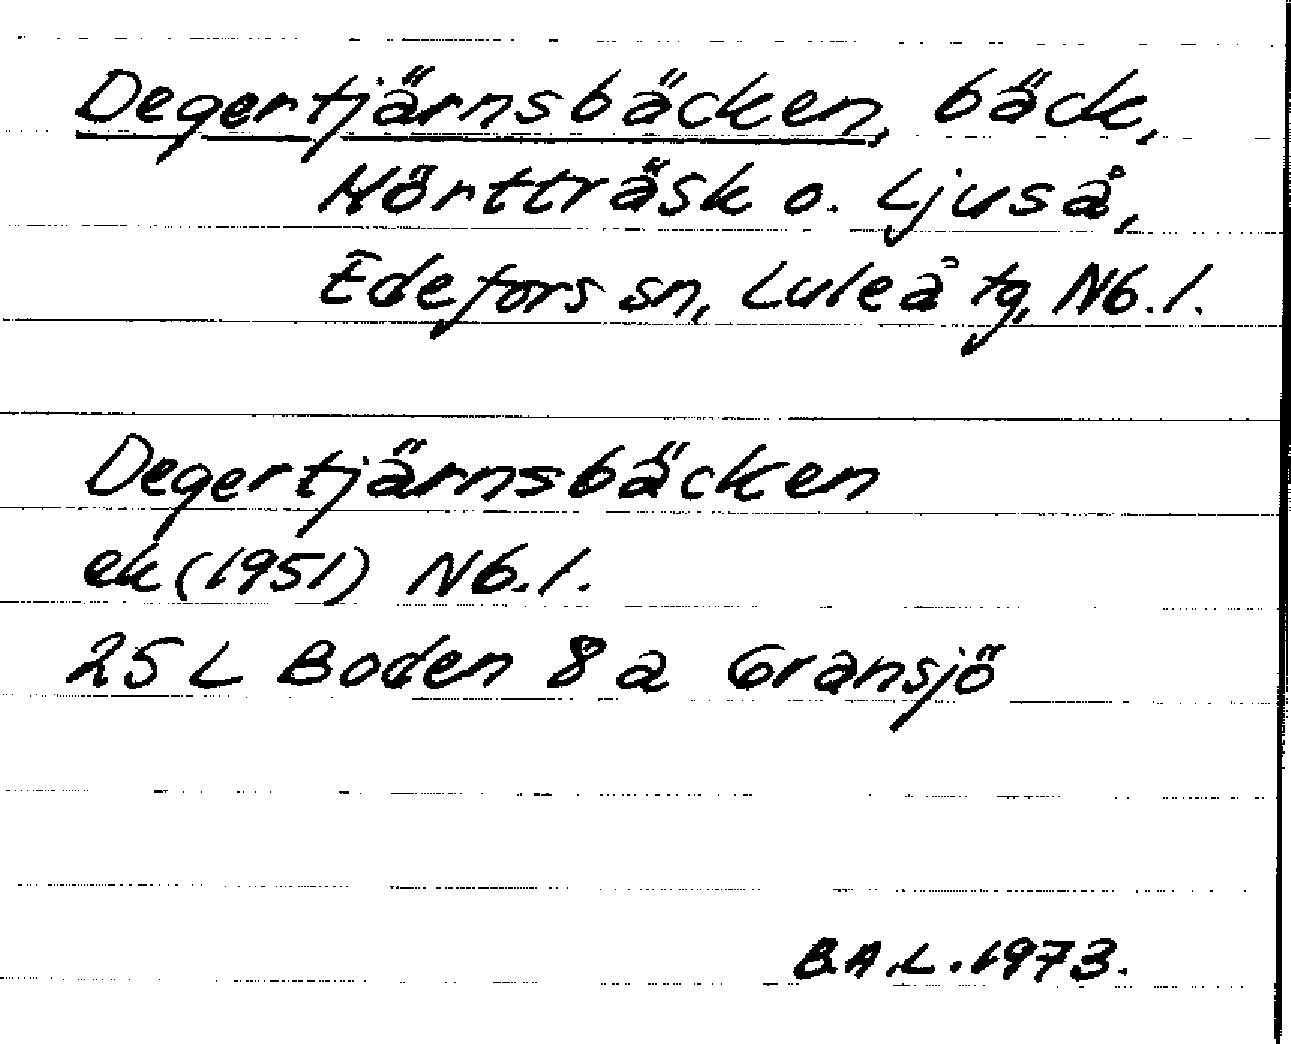 Degertjärnsbäcken, bäck,
Hörtträsk o. Ljuså,
Edefors sn, Luleå tg, Nb.l.
Degertjärnsbäcken
ek (1951) Nb.l.
25 L Boden 8 a Gransjö
B.A.L. 1973.